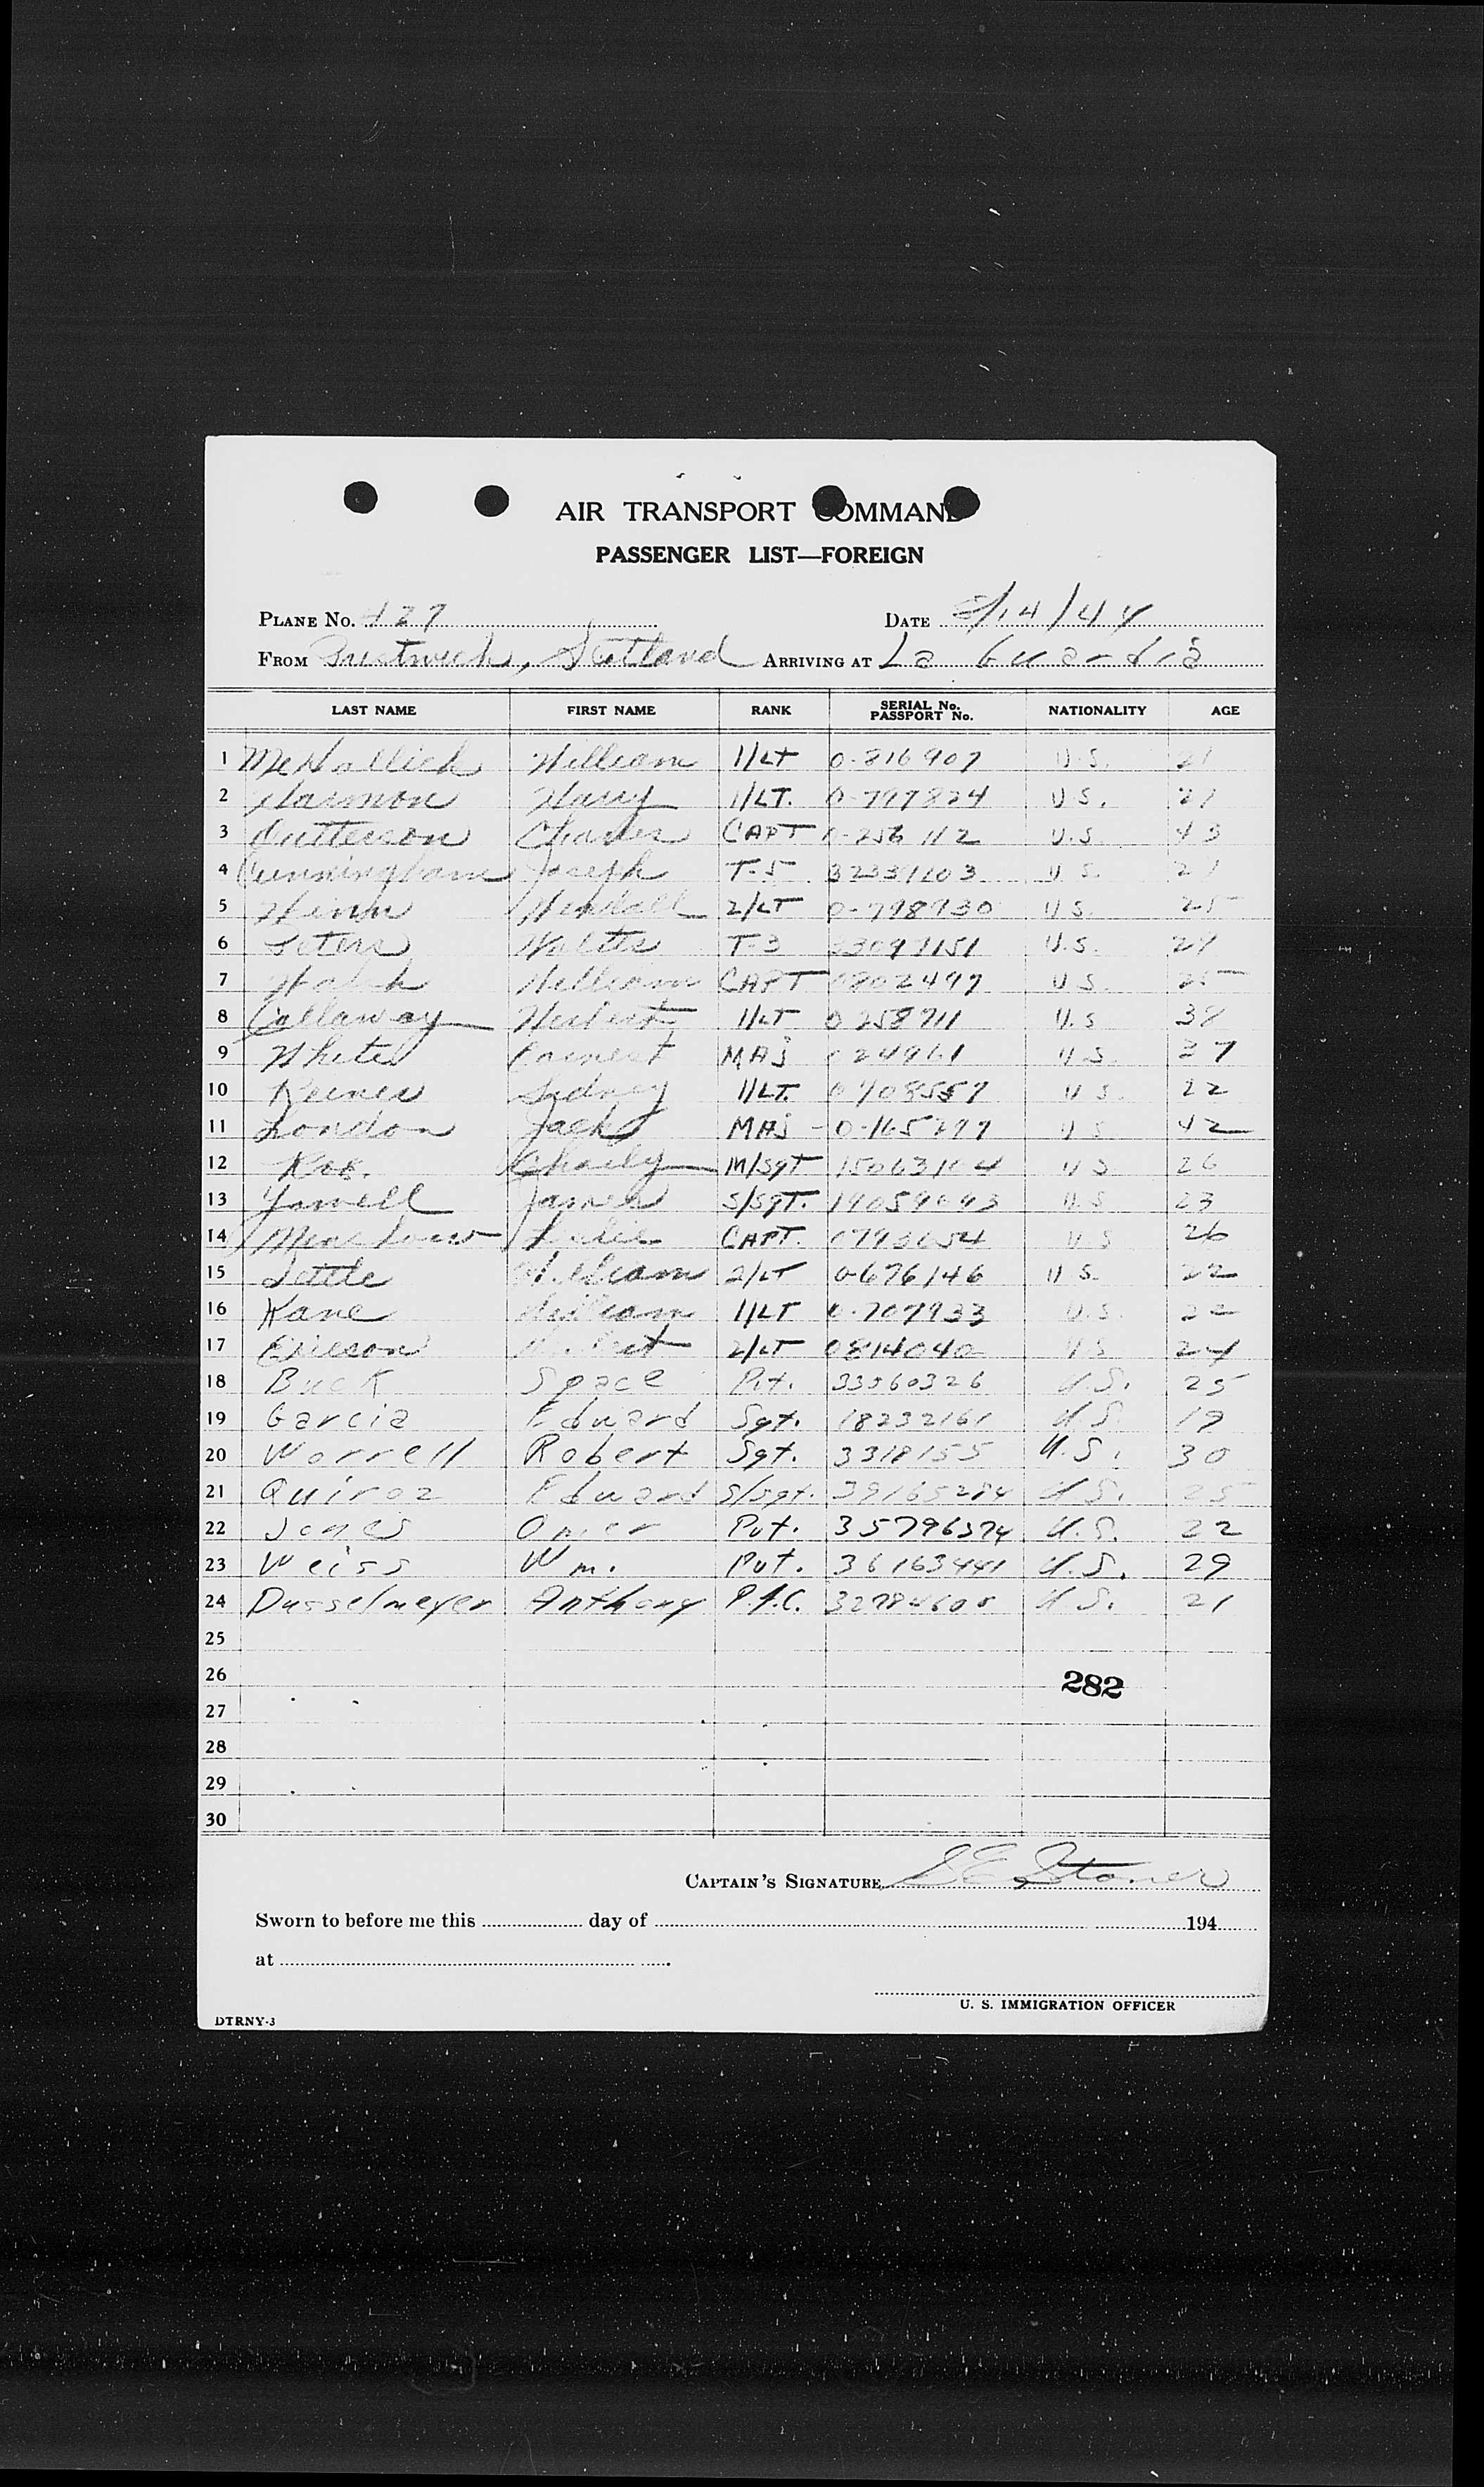 AIR TRANSPORT COMMAND
PASSENGER LIST—FOREIGN
PLANE No. 427 DATE 8/14/44
FROM Prestwick, Scotland ARRIVING AT La Guardia
LAST NAME FIRST NAME RANK SERIAL No. PASSPORT No. NATIONALITY AGE
1 William 1/LT 0-816907 U.S. 21
2 Harmon Harry 1/LT. 0-797824 U.S. 21
3 Patterson Charles CAPT 0-256112 U.S. 43
4 Cunningham Joseph T-5 U.S.
5 Winn Wendall 2/LT 0-798930 U.S. 25
6 Peters Walter T-3 33097151 U.S. 29
7 William CAPT 0802497 U.S. 25
8 Callaway Herbert 1/LT 0258711 U.S. 38
9 White Earnest MAJ U.S. 37
10 Sidney 1/LT. 0708557 U.S. 22
11 London Jack MAJ U.S. 42
12 Charly M/SGT U.S. 26
13 Yowell James S/SGT. U.S. 23
14 Leslie CAPT. U.S. 26
15 William 2/LT 0-676146 U.S. 22
16 Kane William 1/LT 0-707933 U.S. 22
17 Erieson 2/LT 0814040 U.S. 24
18 Buck Space Pvt. 33560326 U.S. 25
19 Garcia Edward Sgt. 18232161 U.S. 19
20 Worrell Robert Sgt. 3318155 U.S. 30
21 Quiroz Edward S/Sgt. 39165284 U.S. 25
22 Jones Omer Pvt. 35796374 U.S. 22
23 Weiss Wm. Pvt. 36163441 U.S. 29
24 Dusselmeyer Anthony P.F.C. U.S. 21
25
26
282
27
28
29
30
CAPTAIN'S SIGNATURE S E Stoner
Sworn to before me this day of 194
at
U. S. IMMIGRATION OFFICER
DTRNY-3